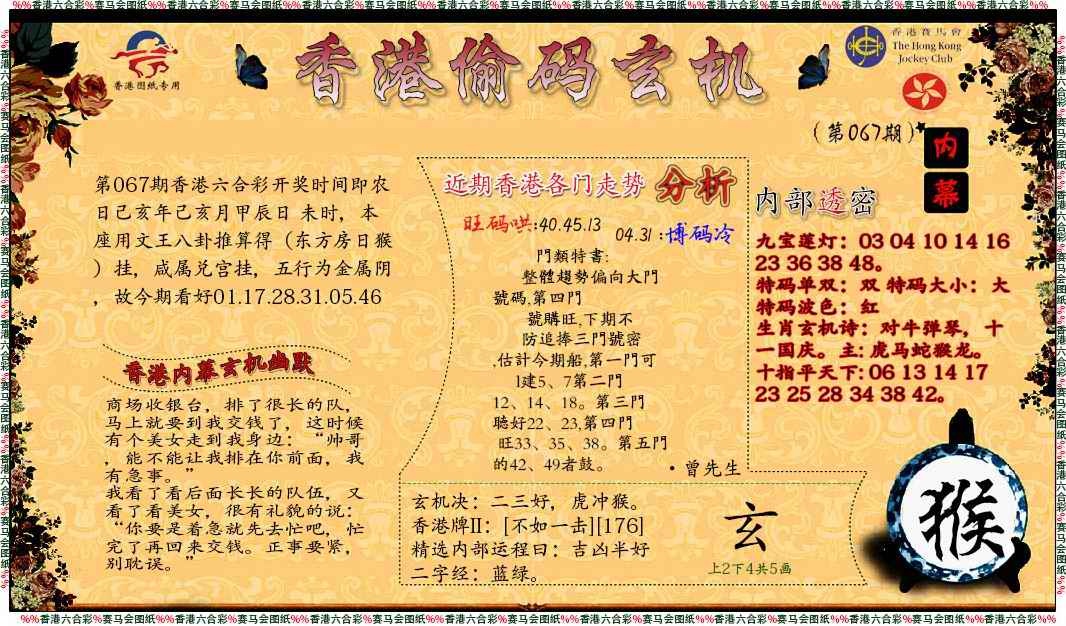 %%香港六合彩%赛马会图纸%%香港六合彩%赛马会图纸%%香港六合彩%赛马会图纸%%香港六合彩%赛马会图纸%%香港六合彩%赛马会图纸%%香港六合彩%赛马会图纸%%香港六合彩%%
香港图纸专用
香港偷码玄机
香港賽馬會
The Hong Kong
Jockey Club
(第067期)
内
幕
第067期香港六合彩开奖时间即农
日己亥年己亥月甲辰日 未时，本
座用文王八卦推算得（东方房日猴
）挂，咸属兑宫挂，五行为金属阴
，故今期看好01.17.28.31.05.46
香港内幕玄机幽默
商场收银台，排了很长的队，
马上就要到我交钱了，这时候
有个美女走到我身边：“帅哥
，能不能让我排在你前面，我
有急事。”
我看了看后面长长的队伍，又
看了看美女，很有礼貌的说：
“你要是着急就先去忙吧，忙
完了再回来交钱。正事要紧，
别耽误。”
近期香港各门走势 分析
旺码哄:40.45.13 04.31:博码冷
門類特書:
整體趨勢偏向大門
號碼,第四門
號購旺,下期不
防追捧三門號密
,估計今期船,第一門可
l建5、7第二門
12、14、18。第三門
聽好22、23,第四門
旺33、35、38。第五門
的42、49者鼓。
·曾先生
内部透密
九宝莲灯：03 04 10 14 16
23 36 38 48。
特码单双：双 特码大小：大
特码波色：红
生肖玄机诗：对牛弹琴，十
一国庆。主:虎马蛇猴龙。
十指平天下:06 13 14 17
23 25 28 34 38 42。
玄机决：二三好，虎冲猴。
香港牌II：[不如一击][176]
精选内部运程曰：吉凶半好
二字经：蓝绿。
玄
上2下4共5画
猴
%%香港六合彩%赛马会图纸%%香港六合彩%赛马会图纸%%香港六合彩%赛马会图纸%%香港六合彩%赛马会图纸%%香港六合彩%赛马会图纸%%香港六合彩%赛马会图纸%%香港六合彩%%